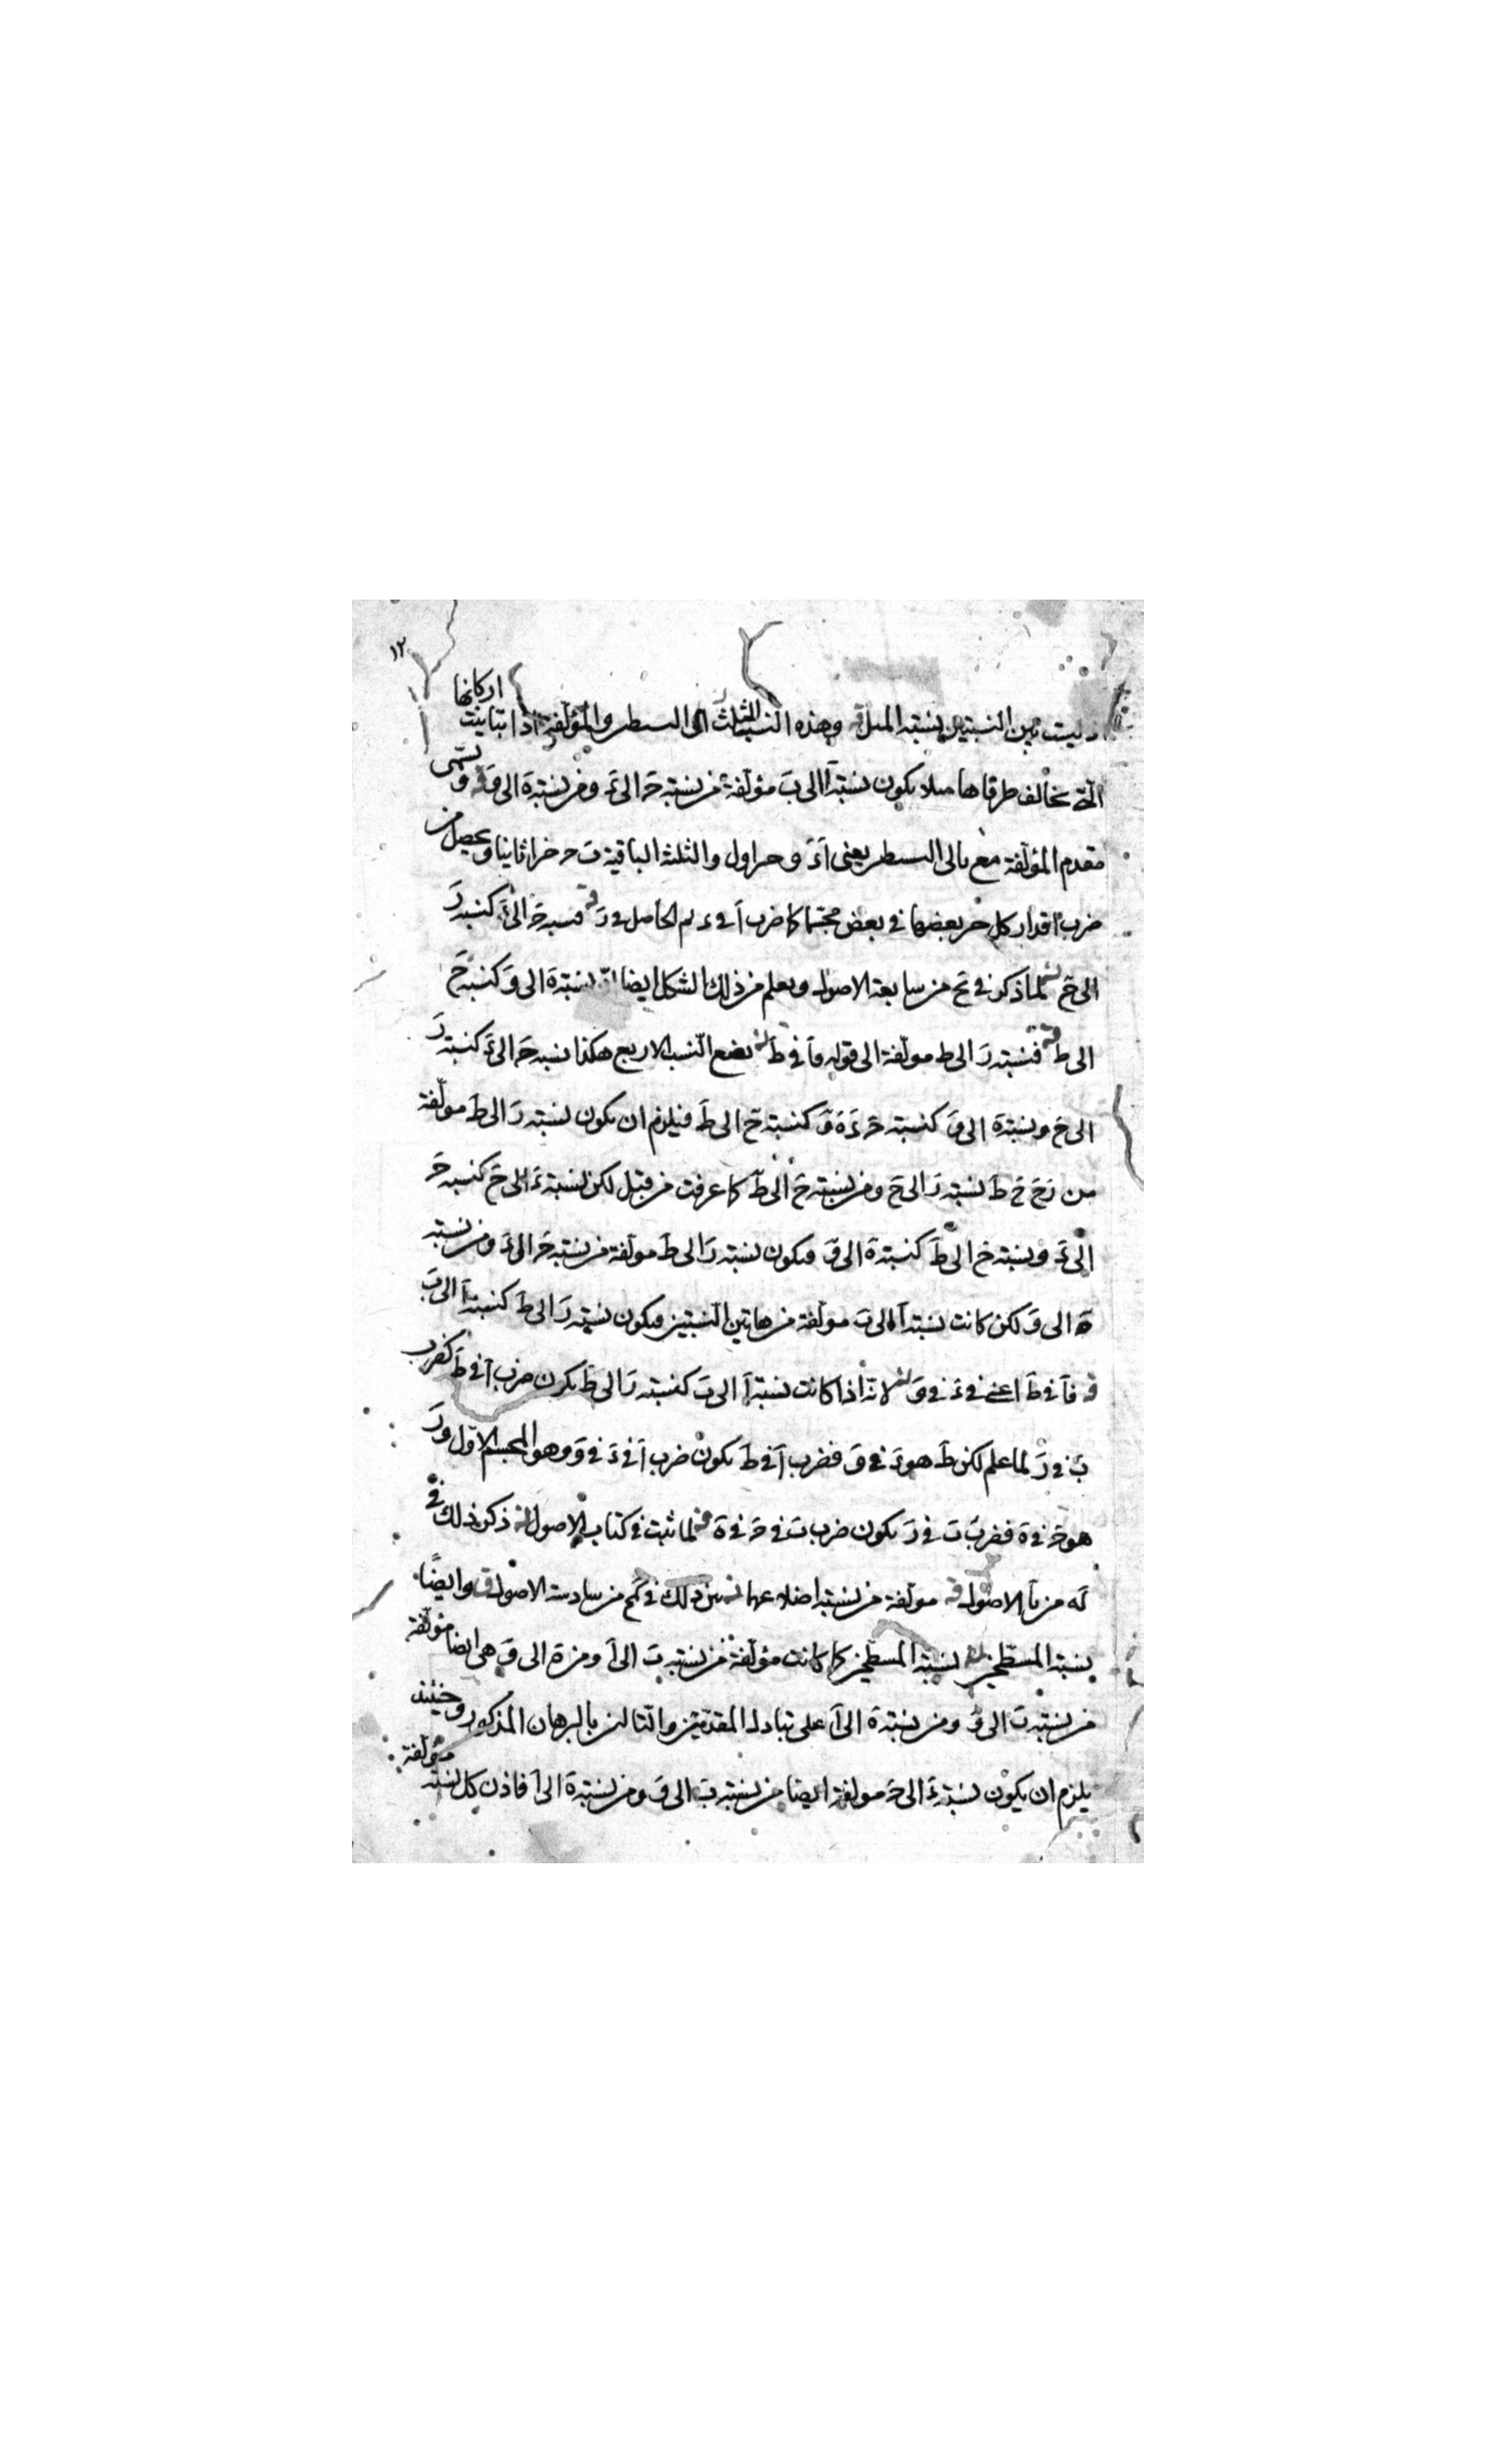 ١٢
ليست بين النسبتين بنسبة وهذه النسب الثلث اى البسيطة والمؤلفة اذا تباينت اركانها
التى تخالف طرفاها مثلا يكون نسبة آ الى ب مؤلفة من نسبة حَ الى ءَ ومن نسبة ه الى وَ قه وسمى
مقدم المؤلفة مع تالى يعنى آ ءَ و حد اول والثلثة الباقية ب ح ه حدا ثانيا ويحصل من
ضرب اقدار كل حد بعضها فى بعض مجسما كما ضرب آ فى ء ثم الحاصل فى وَ قه فنسبة حَ الى ءَ كنسبة رَ
الى حَ لما ذكر فى يح من سابعة الاصول ويعلم من ذلك الشكل ايضا ان نسبة ه الى وَ كنسبة حَ
الى ط قه فنسبة رَ الى ط مولّفة الى قوله فآ فى ط نضع النسب الاربع هكذا نسبة حَ الى ءَ كنسبة رَ
الى حَ ونسبة ه الى وَ كنسبة حَ ءَ ه وَ كنسبة حَ الى ط فيلزم ان يكون نسبة رَ الى ط مولّفة
من رَ حَ حَ ط نسبة رَ الى حَ ومن نسبة حَ الى ط كما عرفت من قبل لكن نسبة ءَ الى حَ كنسبة حَ
الى ءَ ونسبة حَ الى ط كنسبة ه الى وَ فيكون نسبة رَ الى ط مولّفة من نسبة حَ الى ءَ ومن نسبة
ه الى وَ لكن كانت نسبة آ الى ب مولّفة من هاتين النسبتين فيكون نسبة رَ الى ط كنسبة آ الى ب
قه فآ فى ط اعنى فى ءَ فى وَ لانه اذا كانت نسبة آ الى ب كنسبة رَ الى ط يكون ضرب آ فى ط كضرب
ب فى رَ لما علم لكن ط هو ءَ فى وَ فضرب آ فى ط يكون ضرب آ فى ءَ فى وَ وهو المجسم الاول و رَ
هو حَ فى ه فضرب ب فى رَ يكون ضرب ب فى حَ فى ه لما ثبت فى كتاب الاصول ذكر ذلك فى
له من يا الاصول قه مولّفة من نسبة اضلاعهما بين ذلك فى كح من سادسة الاصول قه وايضًا
نسبة المسطحين نسبة المسطحين كما كانت مؤلّفة من نسبة ب الى آ ومن ه الى وَ هى ايضا مؤلّفة
من نسبة ب الى وَ ومن نسبة ه الى آ على تبادل المقدمتين والتاليين بالبرهان المذكور وحينئذ
يلزم ان يكون نسبة ءَ الى حَ مولّفة ايضا من نسبة ب الى وَ ومن نسبة ه الى آ فاذن كل نسبة مؤلّفة